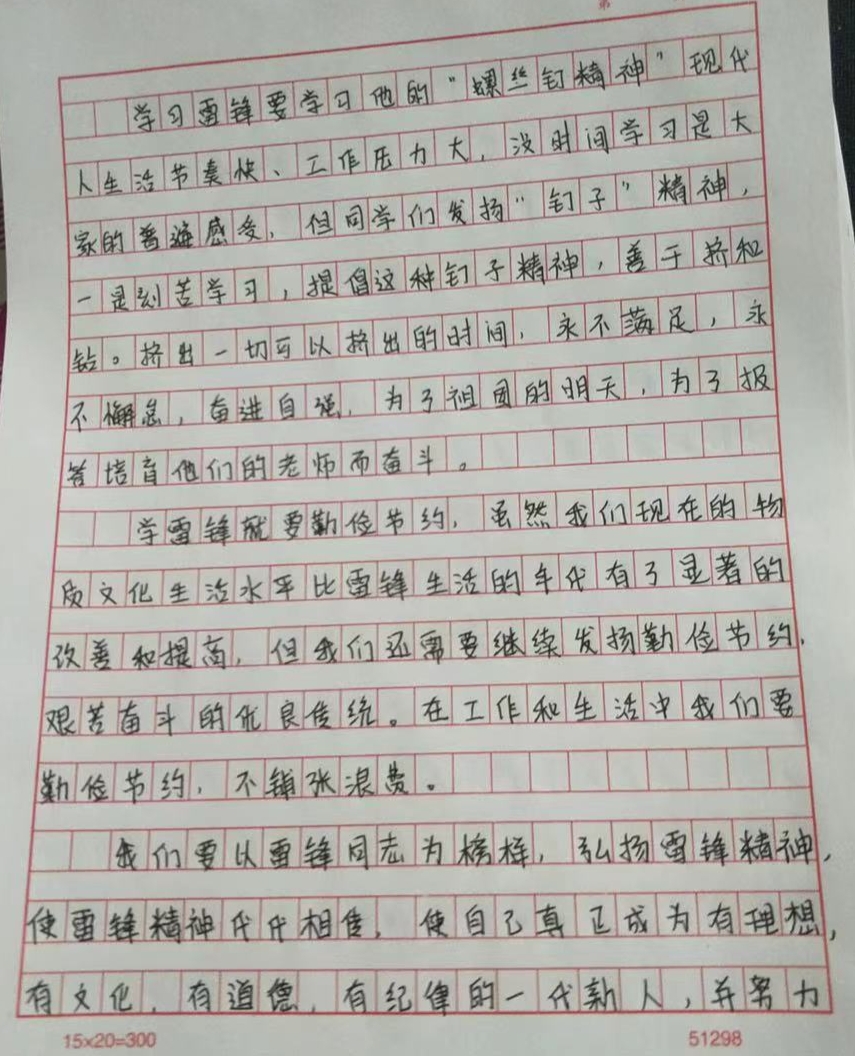 第
学习雷锋要学习他的“螺丝钉精神”现代
人生活节奏快、工作压力大,没时间学习是大
家的普遍感受,但同学们发扬“钉子”精神,
一是刻苦学习,提倡这种钉子精神,善于挤和
钻。挤出一切可以挤出的时间,永不满足,永
不懈怠,奋进自强,为了祖国的明天,为了报
答培育他们的老师而奋斗。
学雷锋就要勤俭节约,虽然我们现在的物
质文化生活水平比雷锋生活的年代有了显著的
改善和提高,但我们还需要继续发扬勤俭节约,
艰苦奋斗的优良传统。在工作和生活中我们要
勤俭节约,不铺张浪费。
我们要以雷锋同志为榜样,弘扬雷锋精神,
使雷锋精神代代相传,使自己真正成为有理想,
有文化,有道德,有纪律的一代新人,并努力
15×20=300
51298